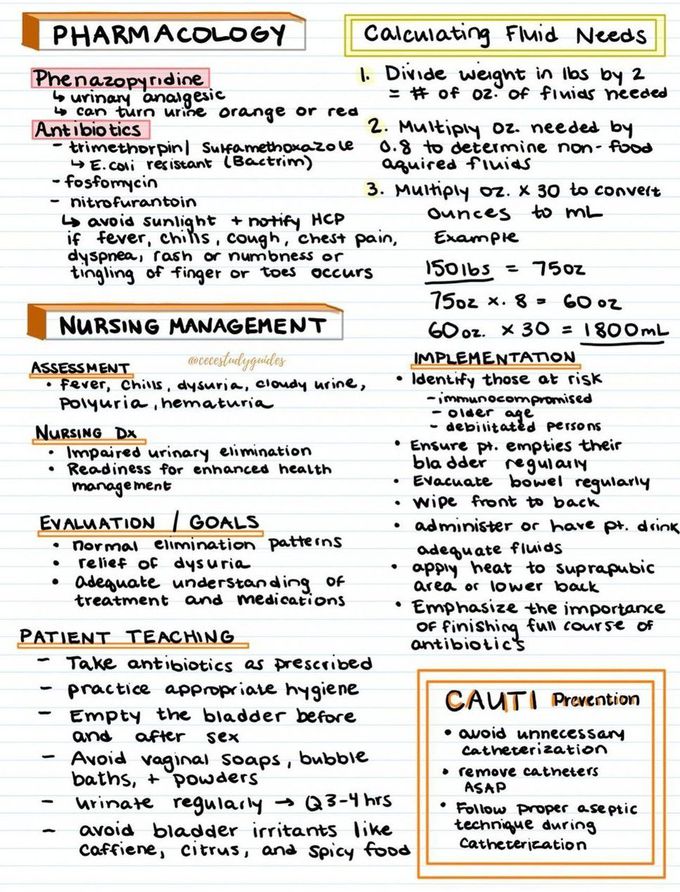 PHARMACOLOGY
Phenazopyridine
↳ urinary analgesic
↳ can turn urine orange or red
Antibiotics
- trimethorpin/ Sulfamethoxazole
↳ E.coli resistant (Bactrim)
- fosfomycin
- nitrofurantoin
↳ avoid sunlight + notify HCP
if fever, chills, cough, chest pain,
dyspnea, rash or numbness or
tingling of finger or toes occurs
Calculating Fluid Needs
1. Divide weight in lbs by 2
= # of oz. of fluids needed
2. Multiply oz. needed by
0.8 to determine non-food
aquired fluids
3. Multiply oz. x 30 to convert
ounces to mL
Example
150lbs = 75oz
75oz x .8 = 60 oz
60 oz. x 30 = 1800mL
NURSING MANAGEMENT
@cecestudyguides
ASSESSMENT
• fever, chills, dysuria, cloudy urine,
polyuria, hematuria
NURSING DX
• Impaired urinary elimination
• Readiness for enhanced health
management
EVALUATION / GOALS
• normal elimination patterns
• relief of dysuria
• adequate understanding of
treatment and medications
PATIENT TEACHING
- Take antibiotics as prescribed
- practice appropriate hygiene
- Empty the bladder before
and after sex
- Avoid vaginal soaps, bubble
baths, + powders
- urinate regularly → Q3-4 hrs
- avoid bladder irritants like
caffiene, citrus, and spicy food
IMPLEMENTATION
• Identify those at risk
- immunocompromised
- older age
- debilitated persons
• Ensure pt. empties their
bladder regularly
• Evacuate bowel regularly
• wipe front to back
• administer or have pt. drink
adequate fluids
• apply heat to suprapubic
area or lower back
• Emphasize the importance
of finishing full course of
antibiotics
CAUTI Prevention
• avoid unnecessary
catheterization
• remove catheters
ASAP
• Follow proper aseptic
technique during
catheterization